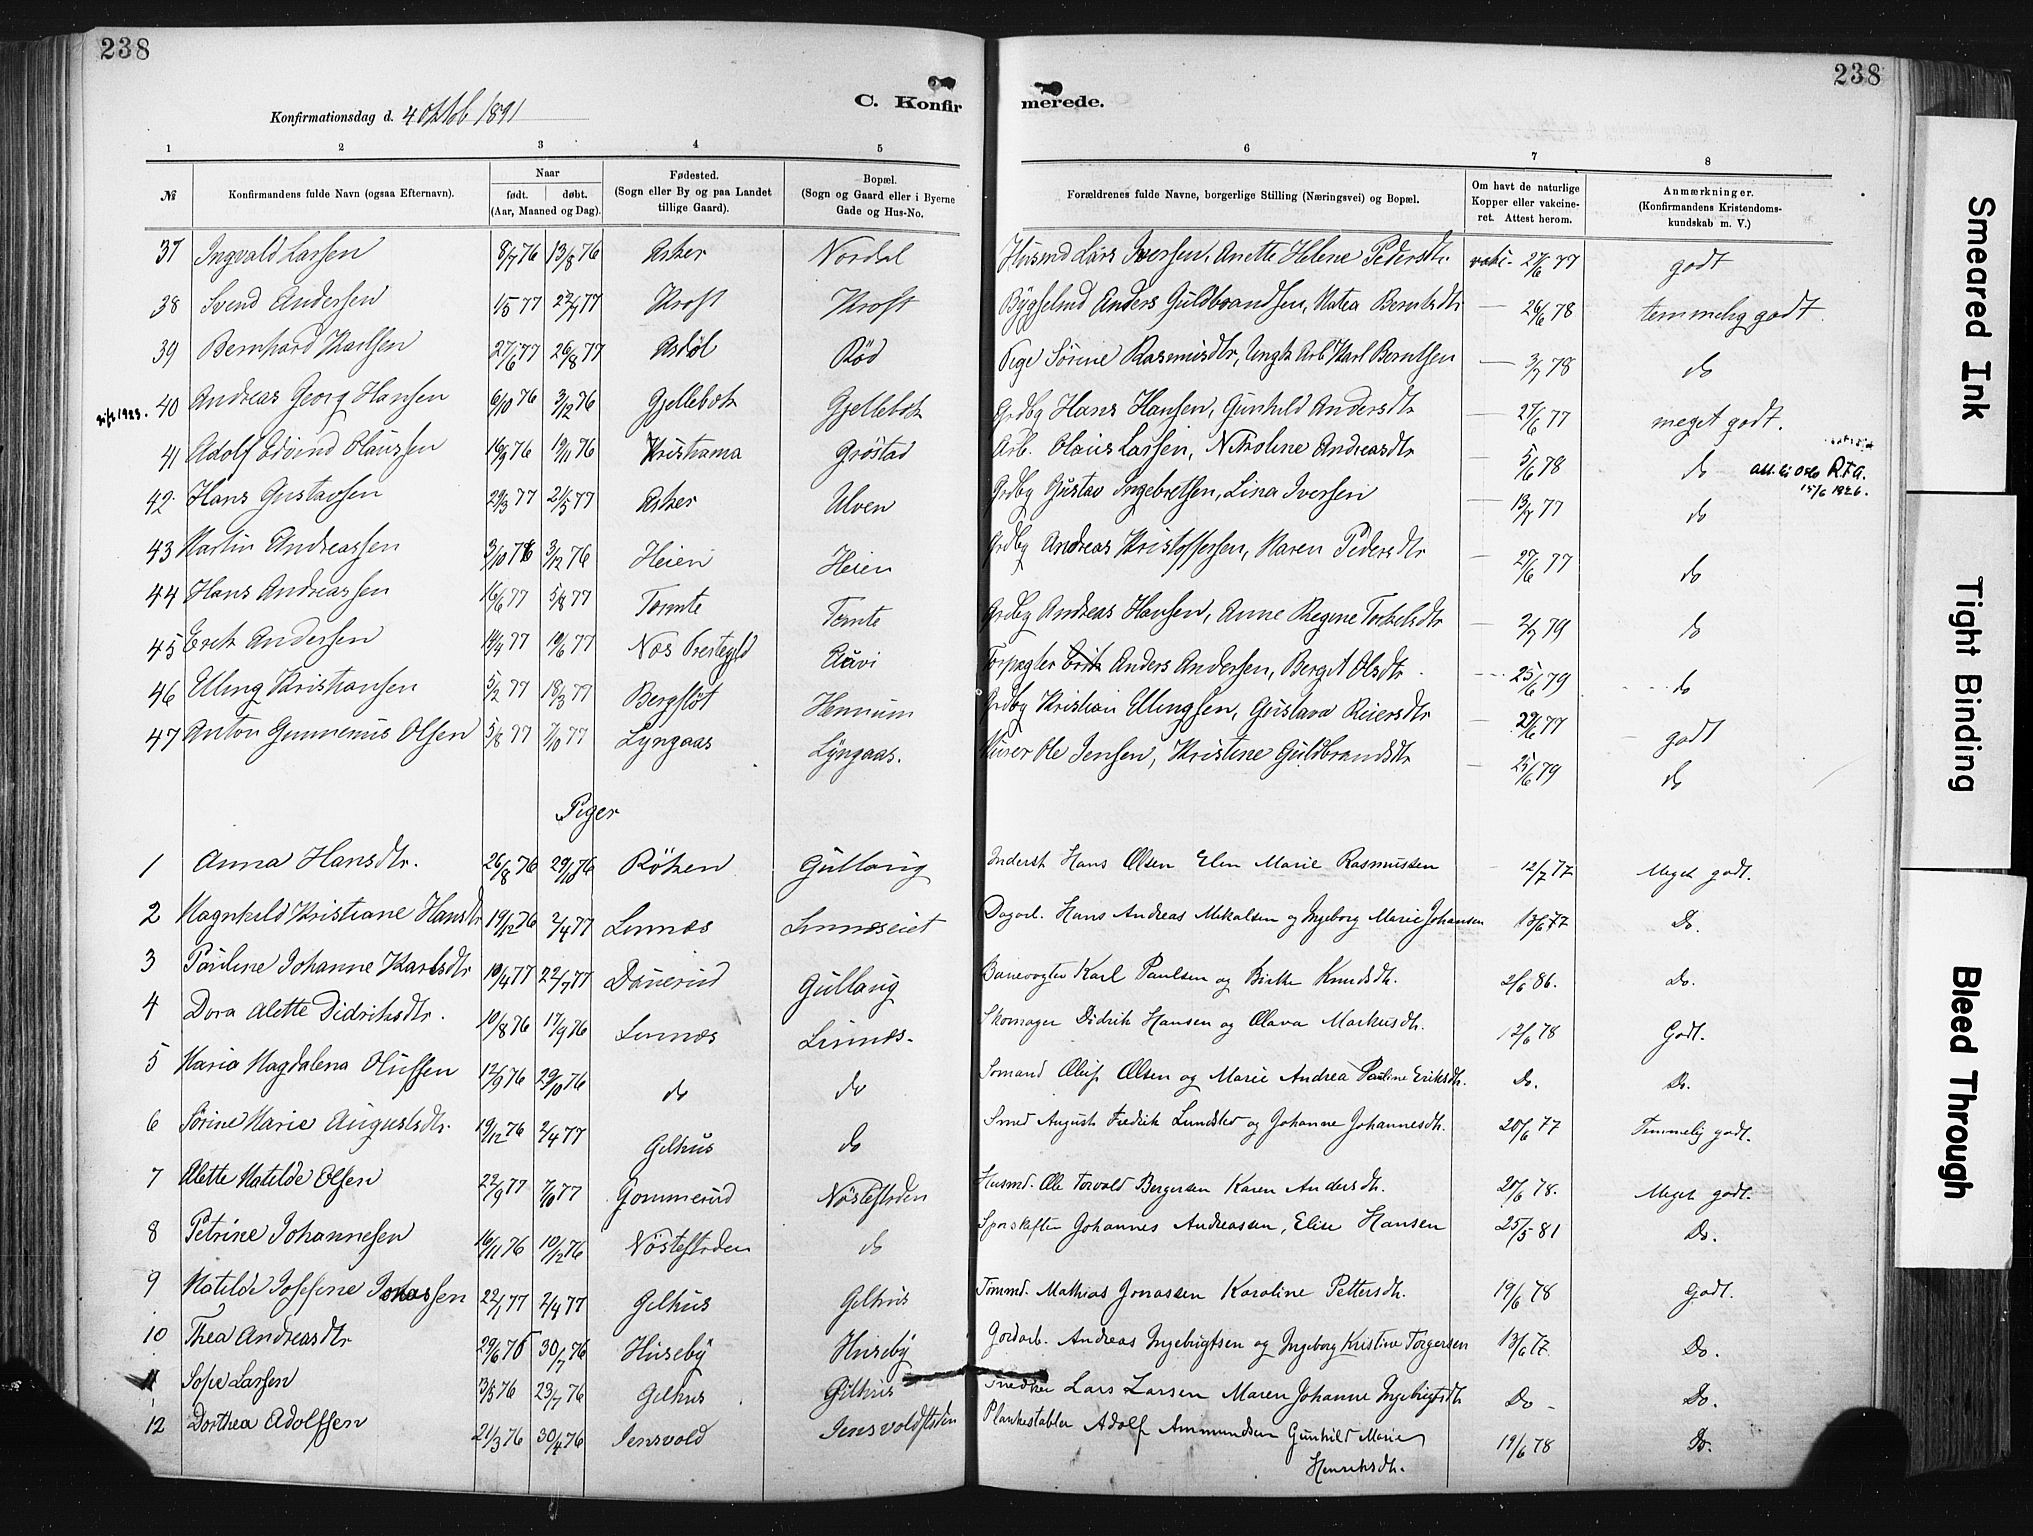 238
238
C. Konfir
merede.
Konfirmationsdag d. 4 Oktob 1891
1 2 3 4 5 6 7 8
№ Konfirmandens fulde Navn (ogsaa Efternavn). Naar født. døbt. (Aar, Maaned og Dag). Fødested. (Sogn eller By og paa Landet tillige Gaard). Bopæl. (Sogn og Gaard eller i Byerne Gade og Hus-No. Forældrenes fulde Navne, borgerlige Stilling (Næringsvei) og Bopæl. Om havt de naturlige Kopper eller vakcineret. Attest herom. Anmærkninger. (Konfirmandens Kristendomskundskab m. V.)
37 Ingvald Larsen 8/7 76 13/8 76 Asker Nordal Husmd Lars Iversen, Anette Helene Pedersdtr. vakc. 27/6 77 godt
38 Svend Andersen 1/5 77 22/7 77 Kroft Kroft Bygselmd Anders Guldbrandsen, Matea Berntsdtr — 26/6 78 temmelig godt.
39 Bernhard Karlsen 27/6 77 26/8 77 Rød Pige Sørine Rasmusdtr, Ungk Arb Karl Berntsen — 3/7 78 do
40 Andreas Georg Hansen 6/10 76 3/12 76 Gjellebek Gjellebek Grdbg Hans Hansen, Gunhild Andersdtr — 27/6 77 meget godt.
41 Adolf Edvind Olaussen 16/9 76 19/11 76 Kristiania Grøstad Arb. Olaus Larsen, N. Andreasdtr — 5/6 78 do Att. til Oslo R.F.A. 15/6 1926.
42. Hans Gustavsen 29/3 77 2/5 77 Asker Ulven Grdbg Gustav Ingebretsen, Lina Iversen — 13/7 77 do
43 Martin Andreassen 3/10 76 3/12 76 Heien Heien Grdbg Andreas Kristoffersen, Maren Pedersdtr — 27/6 77 do
44 Hans Andreassen 16/6 77 5/8 77 Tomte Tomte Grdbg Andreas Hansen, Anne Regine Torkelsdtr — 2/7 79 do
45 Erik Andersen 14/4 77 10/6 77 Nes Prestegjld Anders Andersen, Berget Olsdtr. 25/6 79 do
46 Elling Kristiansen 5/2 77 18/3 77 Bergfløt Hennum Grdbg Kristian Ellingsen, Gustava Reiersdtr — 29/6 77 godt
47 Anton Gunnerius Olsen 5/8 77 7/10 77 Lyngaas Lyngaas. Murer Ole Jensen, Kristine Guldbrandsdtr — 25/6 79 do
Piger
1 Anna Hansdtr. 26/8 76 29/10 76 Røken Gullaug Inderst Hans Olsen Elen Marie Rasmussen — 12/7 77 Meget godt.
2 Magnhild Kristiane Hansdtr 19/12 76 2/4 77 Linnæs Linnæseiet Dagarb. Hans Andreas Mikalsen og Ingeborg Marie Johansen 13/6 77 Do.
3 Pauline Johanne Karlsdtr 10/4 77 22/7 77 Dauerud Gullaug Banevogter Karl Paulsen og Birthe Knudsdtr. 2/6 86. Do.
4 Dora Alette Didriksdtr. 10/8 76 17/9 76 Linnæs Linnæs. Skomager Didrik Hansen og Olava Markusdtr. 12/6 78 Godt.
5 Maria Magdalena Olufsen 12/9 76 29/10 76 do do Sømand Oluf Olsen og Marie Andrea Pauline Eriksdtr. Do. Do.
6 Sørine Marie Augustsdtr. 19/12 76 2/4 77 Gilhus do Smed August Fredrik Lundsted og Johanne Johannesdtr. 20/6 77 Temmelig godt.
7 Alette Matilde Olsen 22/9 77 7/10 77 Gommerud Nøstestrden Husmd. Ole Torvald Bergersen Karen Andersdtr. 20/6 78. Meget godt.
8 Petrine Johannesen 16/11 76 10/12 76 Nøstestrden do Johannes Andreassen, Elise Hansen 25/5 81 Do.
9 Matilde Josefine Jonassen 22/1 77 2/4 77 Gilhus Gilhus Tømmd. Mathias Jonassen Karoline Pettersdtr. 19/6 78 Godt.
10 Thea Andreasdtr 29/6 76 30/7 76 Huseby Huseby Gordarb. Andreas Ingebrigtsen og Ingeborg Kristine Torgersen 13/6 77. Do.
11 Sofie Larsen 3/5 76 23/7 76 Gilhus Gilhus Lars Larsen Maren Johanne Ingebrigtsdtr. Do. Do.
12 Dorthea Adolfsen 21/3 76 30/4 76 Jensvold Jensvoldstrden Plankestabler Adolf Ammundsen Gunhild Marie
Henriksdtr. 19/6 78 Do.
Smeared Ink
Tight Binding
Bleed Through